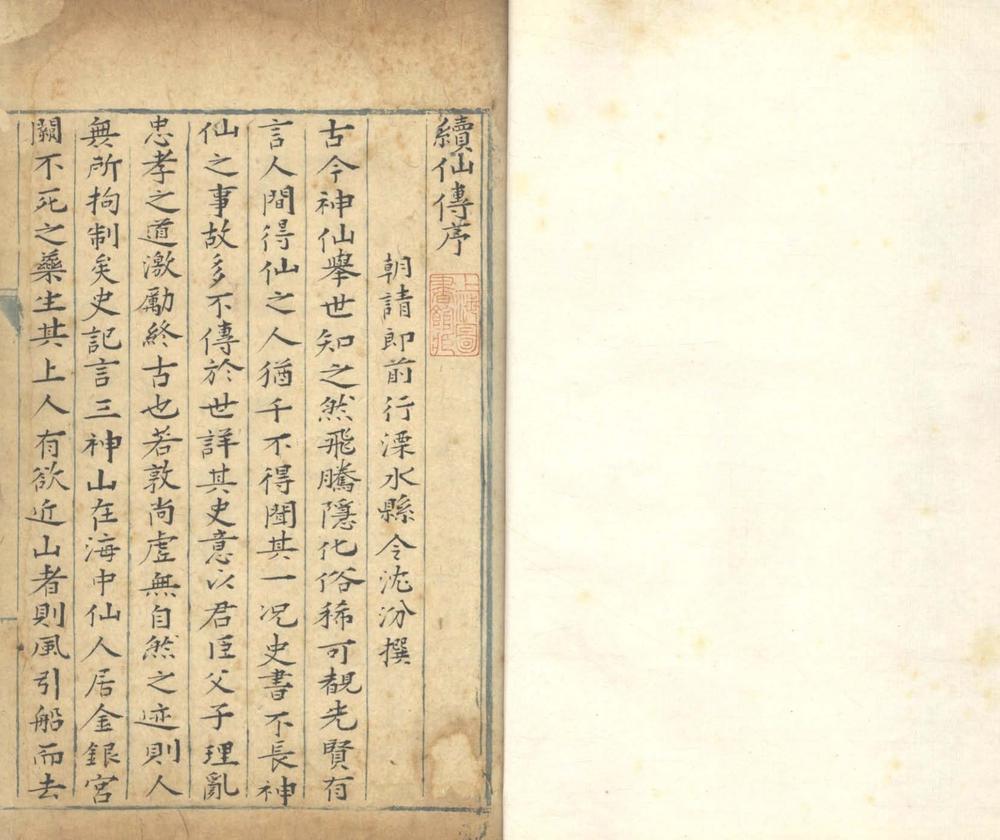 續仙傳序
上海圖書館藏
朝請郎前行溧水縣令沈汾撰
古今神仙舉世知之然飛騰隱化俗稀可覩先賢有
言人間得仙之人猶千不得聞其一况史書不長神
仙之事故多不傳於世詳其史意以君臣父子理亂
忠孝之道激勵終古也若敦尚虛無自然之迹則人
無所拘制矣史記言三神山在海中仙人居金銀宮
闕不死之藥生其上人有欲近山者則風引船而去